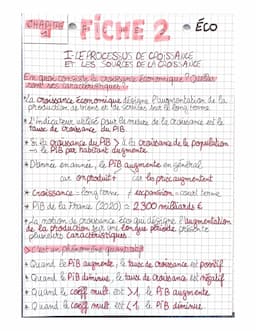 CHAPITRE 1
FICHE 2
ÉCO
I-LE PROCESSUS DE CROISSANCE
ET LES SOURCES DE LA CROISSANCE
En quoi consiste la croissance économique ? Quelles
sont ses caractéristiques ?
* La croissance économique désigne l'augmentation de la
production de biens et de services sur le long terme.
* L'indicateur utilisé pour la mesure de la croissance est le
taux de croissance du PIB
* Si la croissance du PIB > à la croissance de la population
→ le PIB par habitant augmente.
* D'année en année, le PIB augmente en général
car on produit + / car les prix augmentent
* croissance = long terme / expansion = court terme
* PIB de la France (2020) = 2300 milliards €
* La notion de croissance éco qui désigne l'augmentation
de la production sur une longue période présente
plusieurs caractéristiques
> C'est un phénomène quantitatif
* Quand le PIB augmente, le taux de croissance est positif
* Quand le PIB diminue, le taux de croissance est négatif
* Quand le coeff mult est > 1, le PIB augmente
* Quand le coeff mult est < 1, le PIB diminue